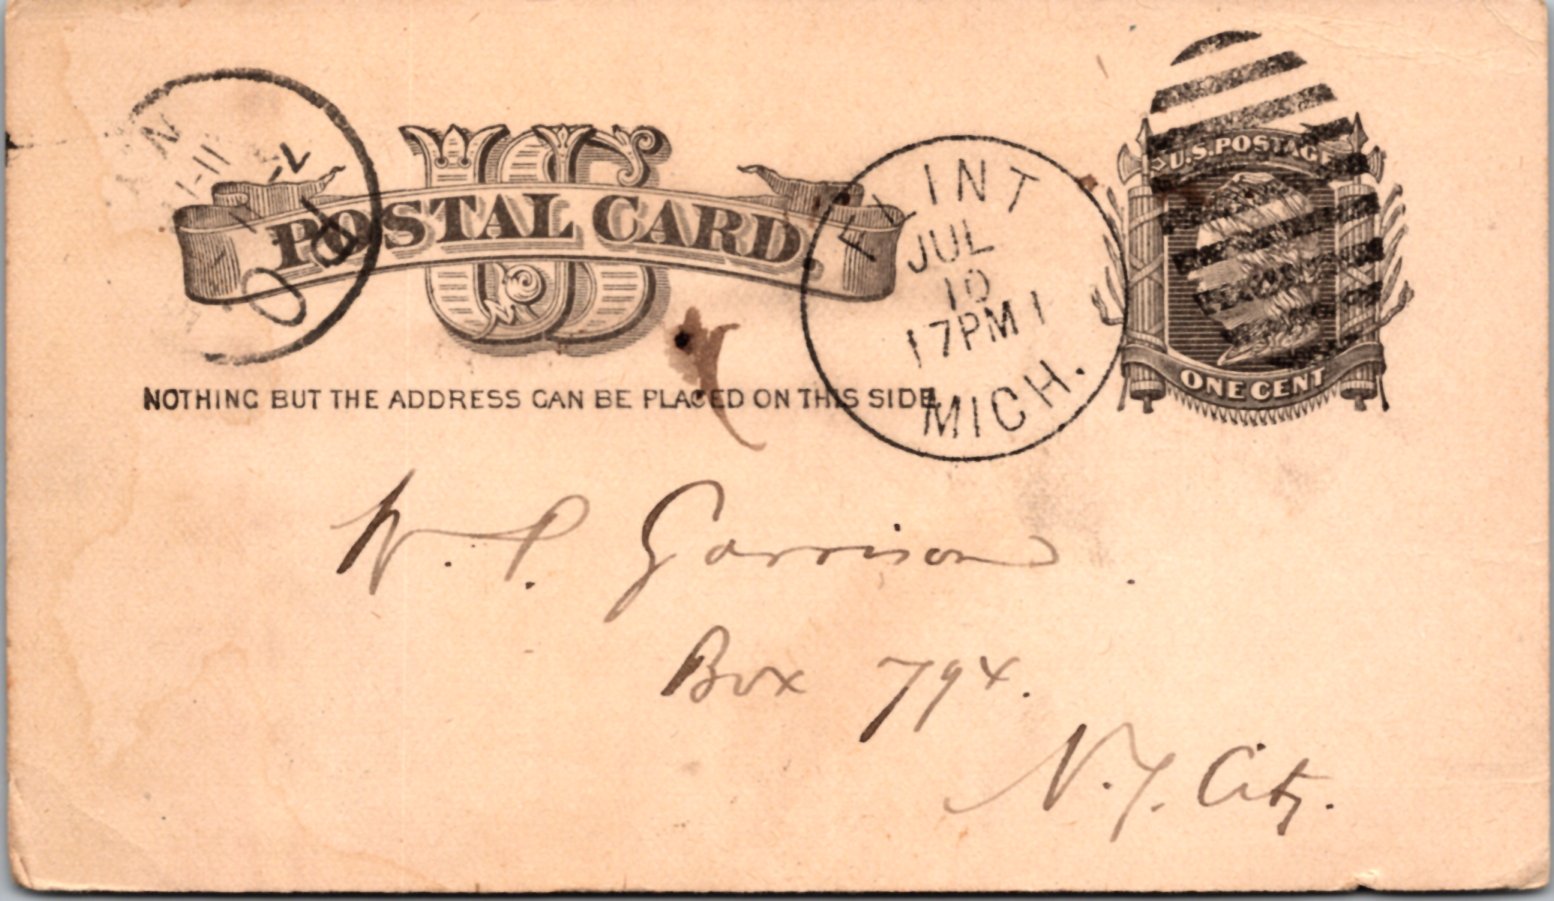 US
POSTAL CARD.
NOTHING BUT THE ADDRESS CAN BE PLACED ON THIS SIDE.
FLINT
JUL
10
7PM
MICH.
U.S. POSTAGE
ONE CENT
W. P. Garrison.
Box 794.
N. Y. City.